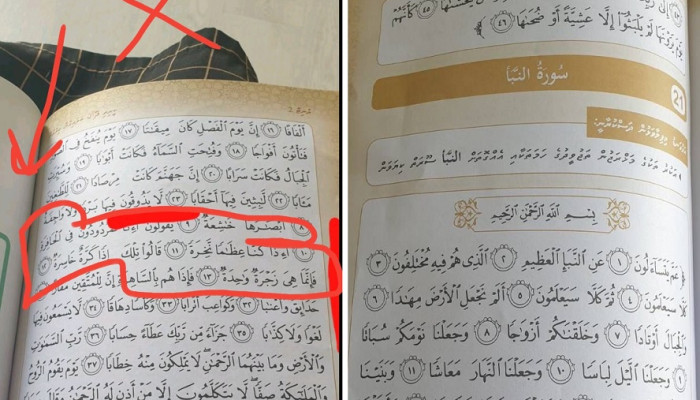 أَلْفَافًا ١٦ إِنَّ يَوْمَ ٱلْفَصْلِ كَانَ مِيقَٰتًا ١٧ يَوْمَ يُنفَخُ فِى
فَتَأْتُونَ أَفْوَاجًا ١٨ وَفُتِحَتِ ٱلسَّمَآءُ فَكَانَتْ أَبْوَٰبًا ١٩
ٱلْجِبَالُ فَكَانَتْ سَرَابًا ٢٠ إِنَّ جَهَنَّمَ كَانَتْ مِرْصَادًا ٢١ لِّلطَّٰغِينَ
مَـَٔابًا ٢٢ لَّٰبِثِينَ فِيهَآ أَحْقَابًا ٢٣ لَّا يَذُوقُونَ فِيهَا
٨ أَبْصَٰرُهَا خَٰشِعَةٌ ٩ يَقُولُونَ فِى ٱلْحَافِرَةِ
١٠ أَءِذَا كُنَّا عِظَٰمًا نَّخِرَةً ١١ قَالُوا۟ تِلْكَ إِذًا كَرَّةٌ خَاسِرَةٌ ١٢
فَإِنَّمَا هِىَ زَجْرَةٌ وَٰحِدَةٌ ١٣ فَإِذَا هُم بِٱلسَّاهِرَةِ إِنَّ لِلْمُتَّقِينَ مَفَازًا
حَدَآئِقَ وَأَعْنَٰبًا ٣٢ وَكَوَاعِبَ أَتْرَابًا ٣٣ وَكَأْسًا دِهَاقًا ٣٤ لَّا يَسْمَعُونَ فِيهَا
لَغْوًا وَلَا كِذَّٰبًا ٣٥ جَزَآءً مِّن رَّبِّكَ عَطَآءً حِسَابًا ٣٦ رَّبِّ ٱلسَّمَٰوَٰتِ
وَٱلْأَرْضِ وَمَا بَيْنَهُمَا ٱلرَّحْمَٰنِ لَا يَمْلِكُونَ مِنْهُ خِطَابًا ٣٧ يَوْمَ يَقُومُ ٱلرُّوحُ
وَٱلْمَلَٰٓئِكَةُ صَفًّا لَّا يَتَكَلَّمُونَ إِلَّا مَنْ أَذِنَ لَهُ ٱلرَّحْمَٰنُ وَقَالَ
يَوْمَ يَرَوْنَهَا لَمْ يَلْبَثُوٓا۟ إِلَّا عَشِيَّةً أَوْ ضُحَىٰهَا ٤٦
سُورَةُ النَّبَإِ
21
بِسْمِ ٱللَّهِ ٱلرَّحْمَٰنِ ٱلرَّحِيمِ
عَمَّ يَتَسَآءَلُونَ ١ عَنِ ٱلنَّبَإِ ٱلْعَظِيمِ ٢ ٱلَّذِى هُمْ فِيهِ مُخْتَلِفُونَ ٣
كَلَّا سَيَعْلَمُونَ ٤ ثُمَّ كَلَّا سَيَعْلَمُونَ ٥ أَلَمْ نَجْعَلِ ٱلْأَرْضَ مِهَٰدًا ٦
وَٱلْجِبَالَ أَوْتَادًا ٧ وَخَلَقْنَٰكُمْ أَزْوَٰجًا ٨ وَجَعَلْنَا نَوْمَكُمْ سُبَاتًا
٩ وَجَعَلْنَا ٱلَّيْلَ لِبَاسًا ١٠ وَجَعَلْنَا ٱلنَّهَارَ مَعَاشًا ١١ وَبَنَيْنَا